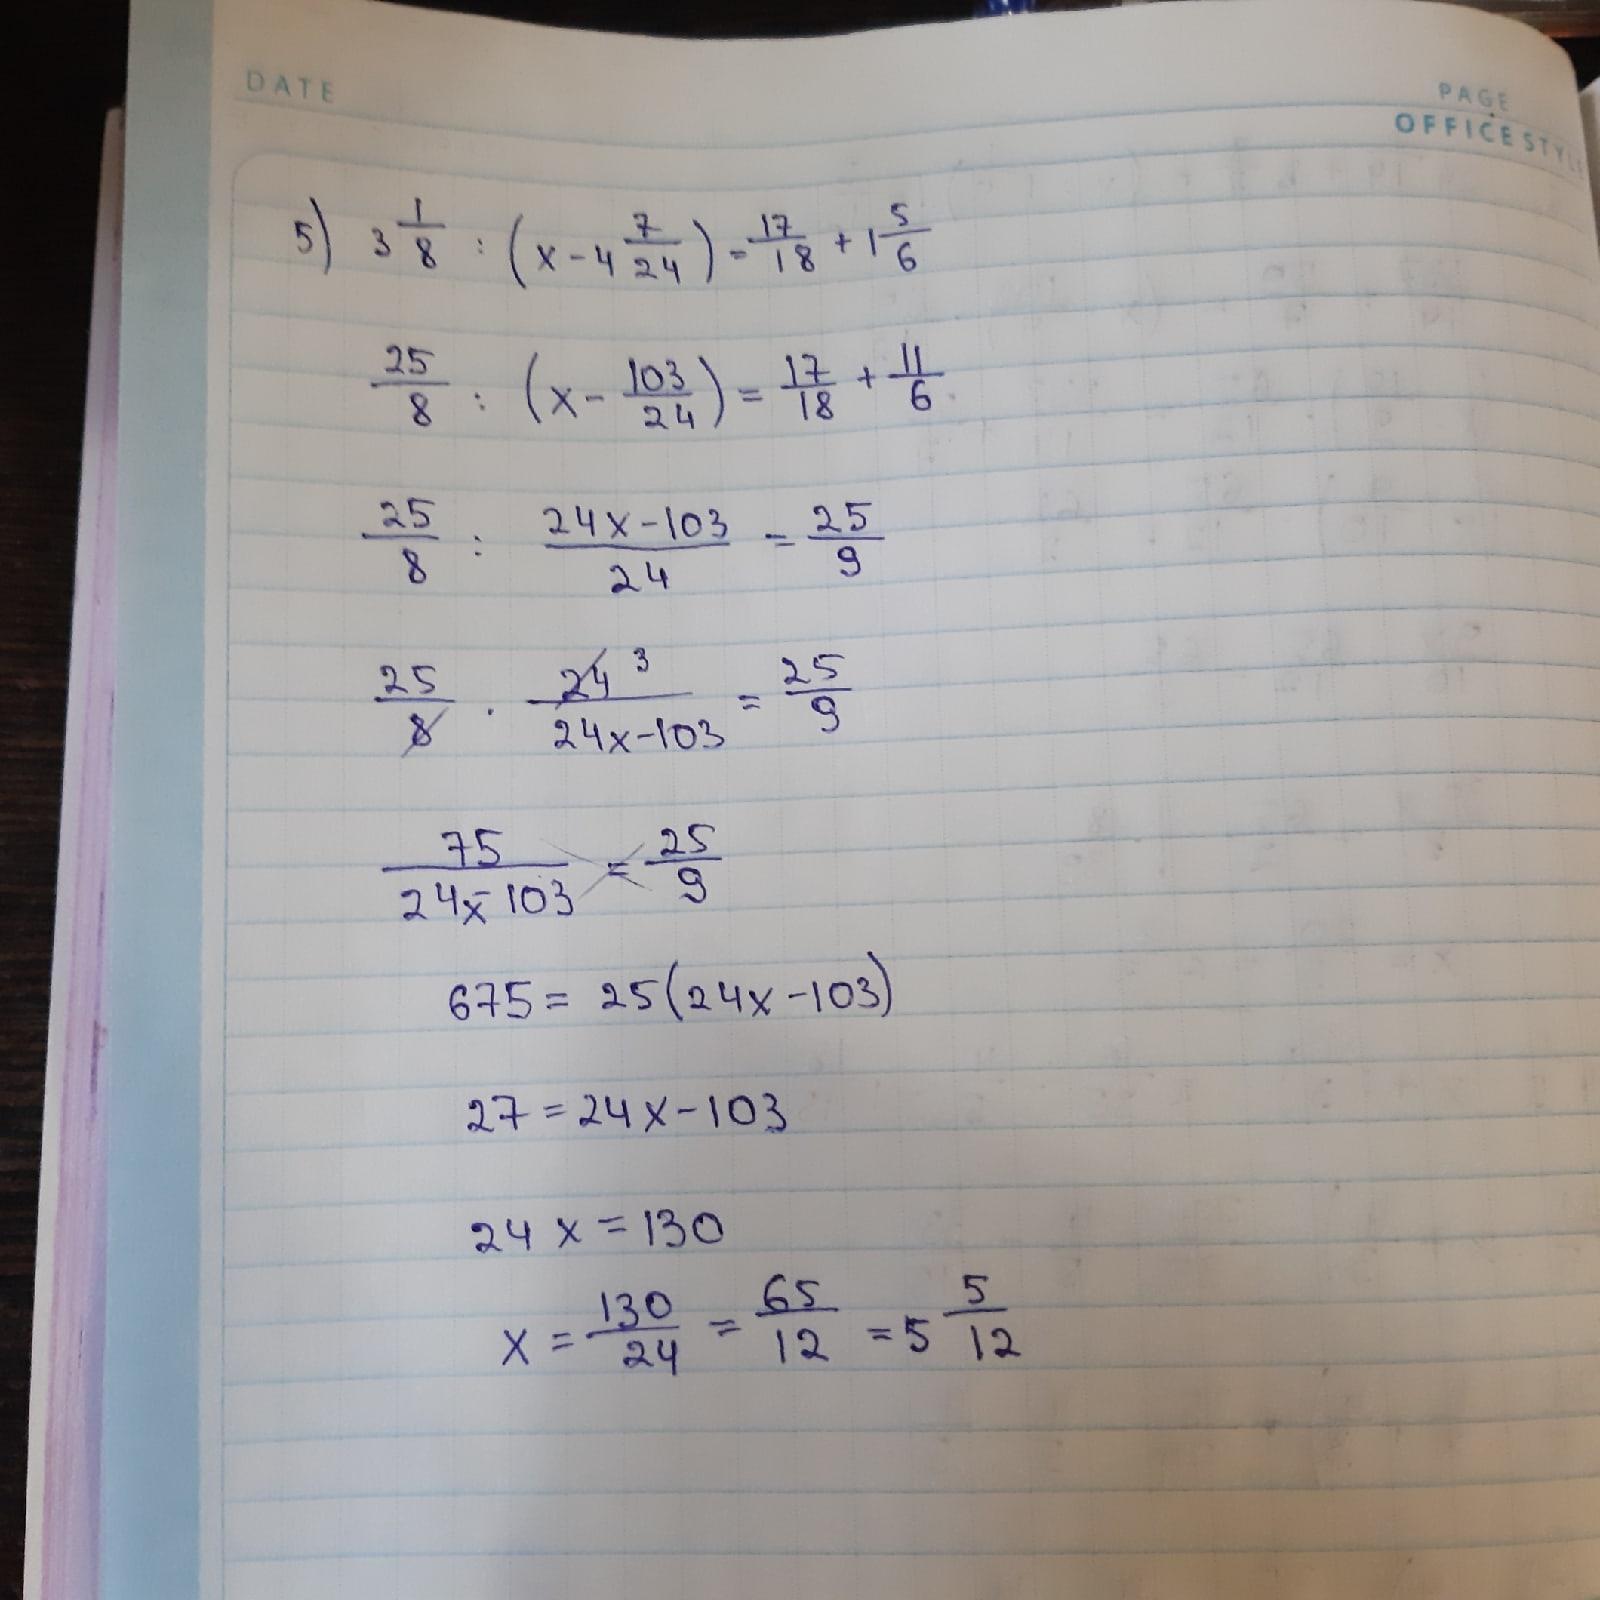 DATE
PAGE
OFFICE STYL
5) 3 1/8 : (x - 4 7/24) = 17/18 + 1 5/6
25/8 : (x - 103/24) = 17/18 + 11/6
25/8 : 24x-103/24 = 25/9
25/8 · 24 3/24x-103 = 25/9
75/24x-103 = 25/9
675 = 25(24x-103)
27 = 24x-103
24x = 130
x = 130/24 = 65/12 = 5 5/12